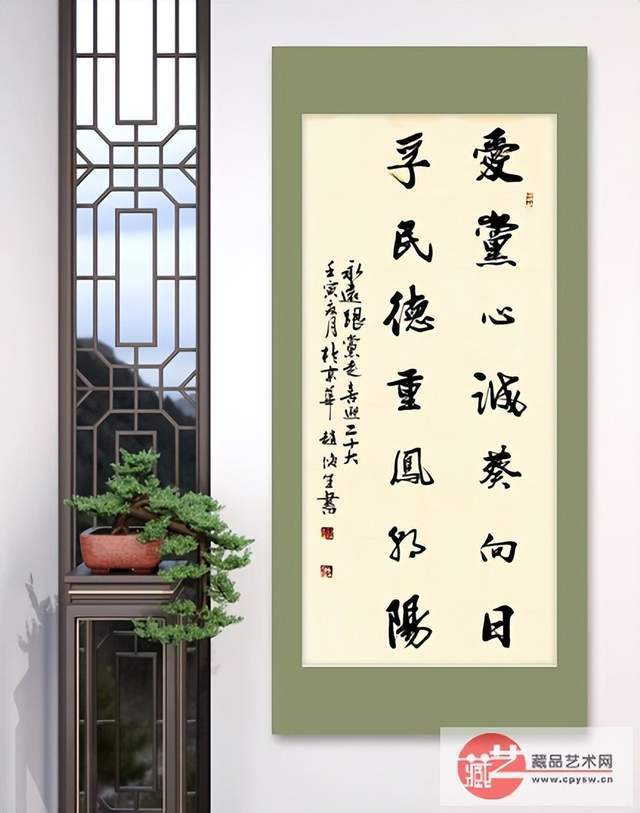 愛黨心誠葵向日
孚民德重鳳朝陽
永遠跟黨走喜迎二十大
壬寅夏月於京華 趙生書
藏艺
藏品艺术网
www.cpysw.cn